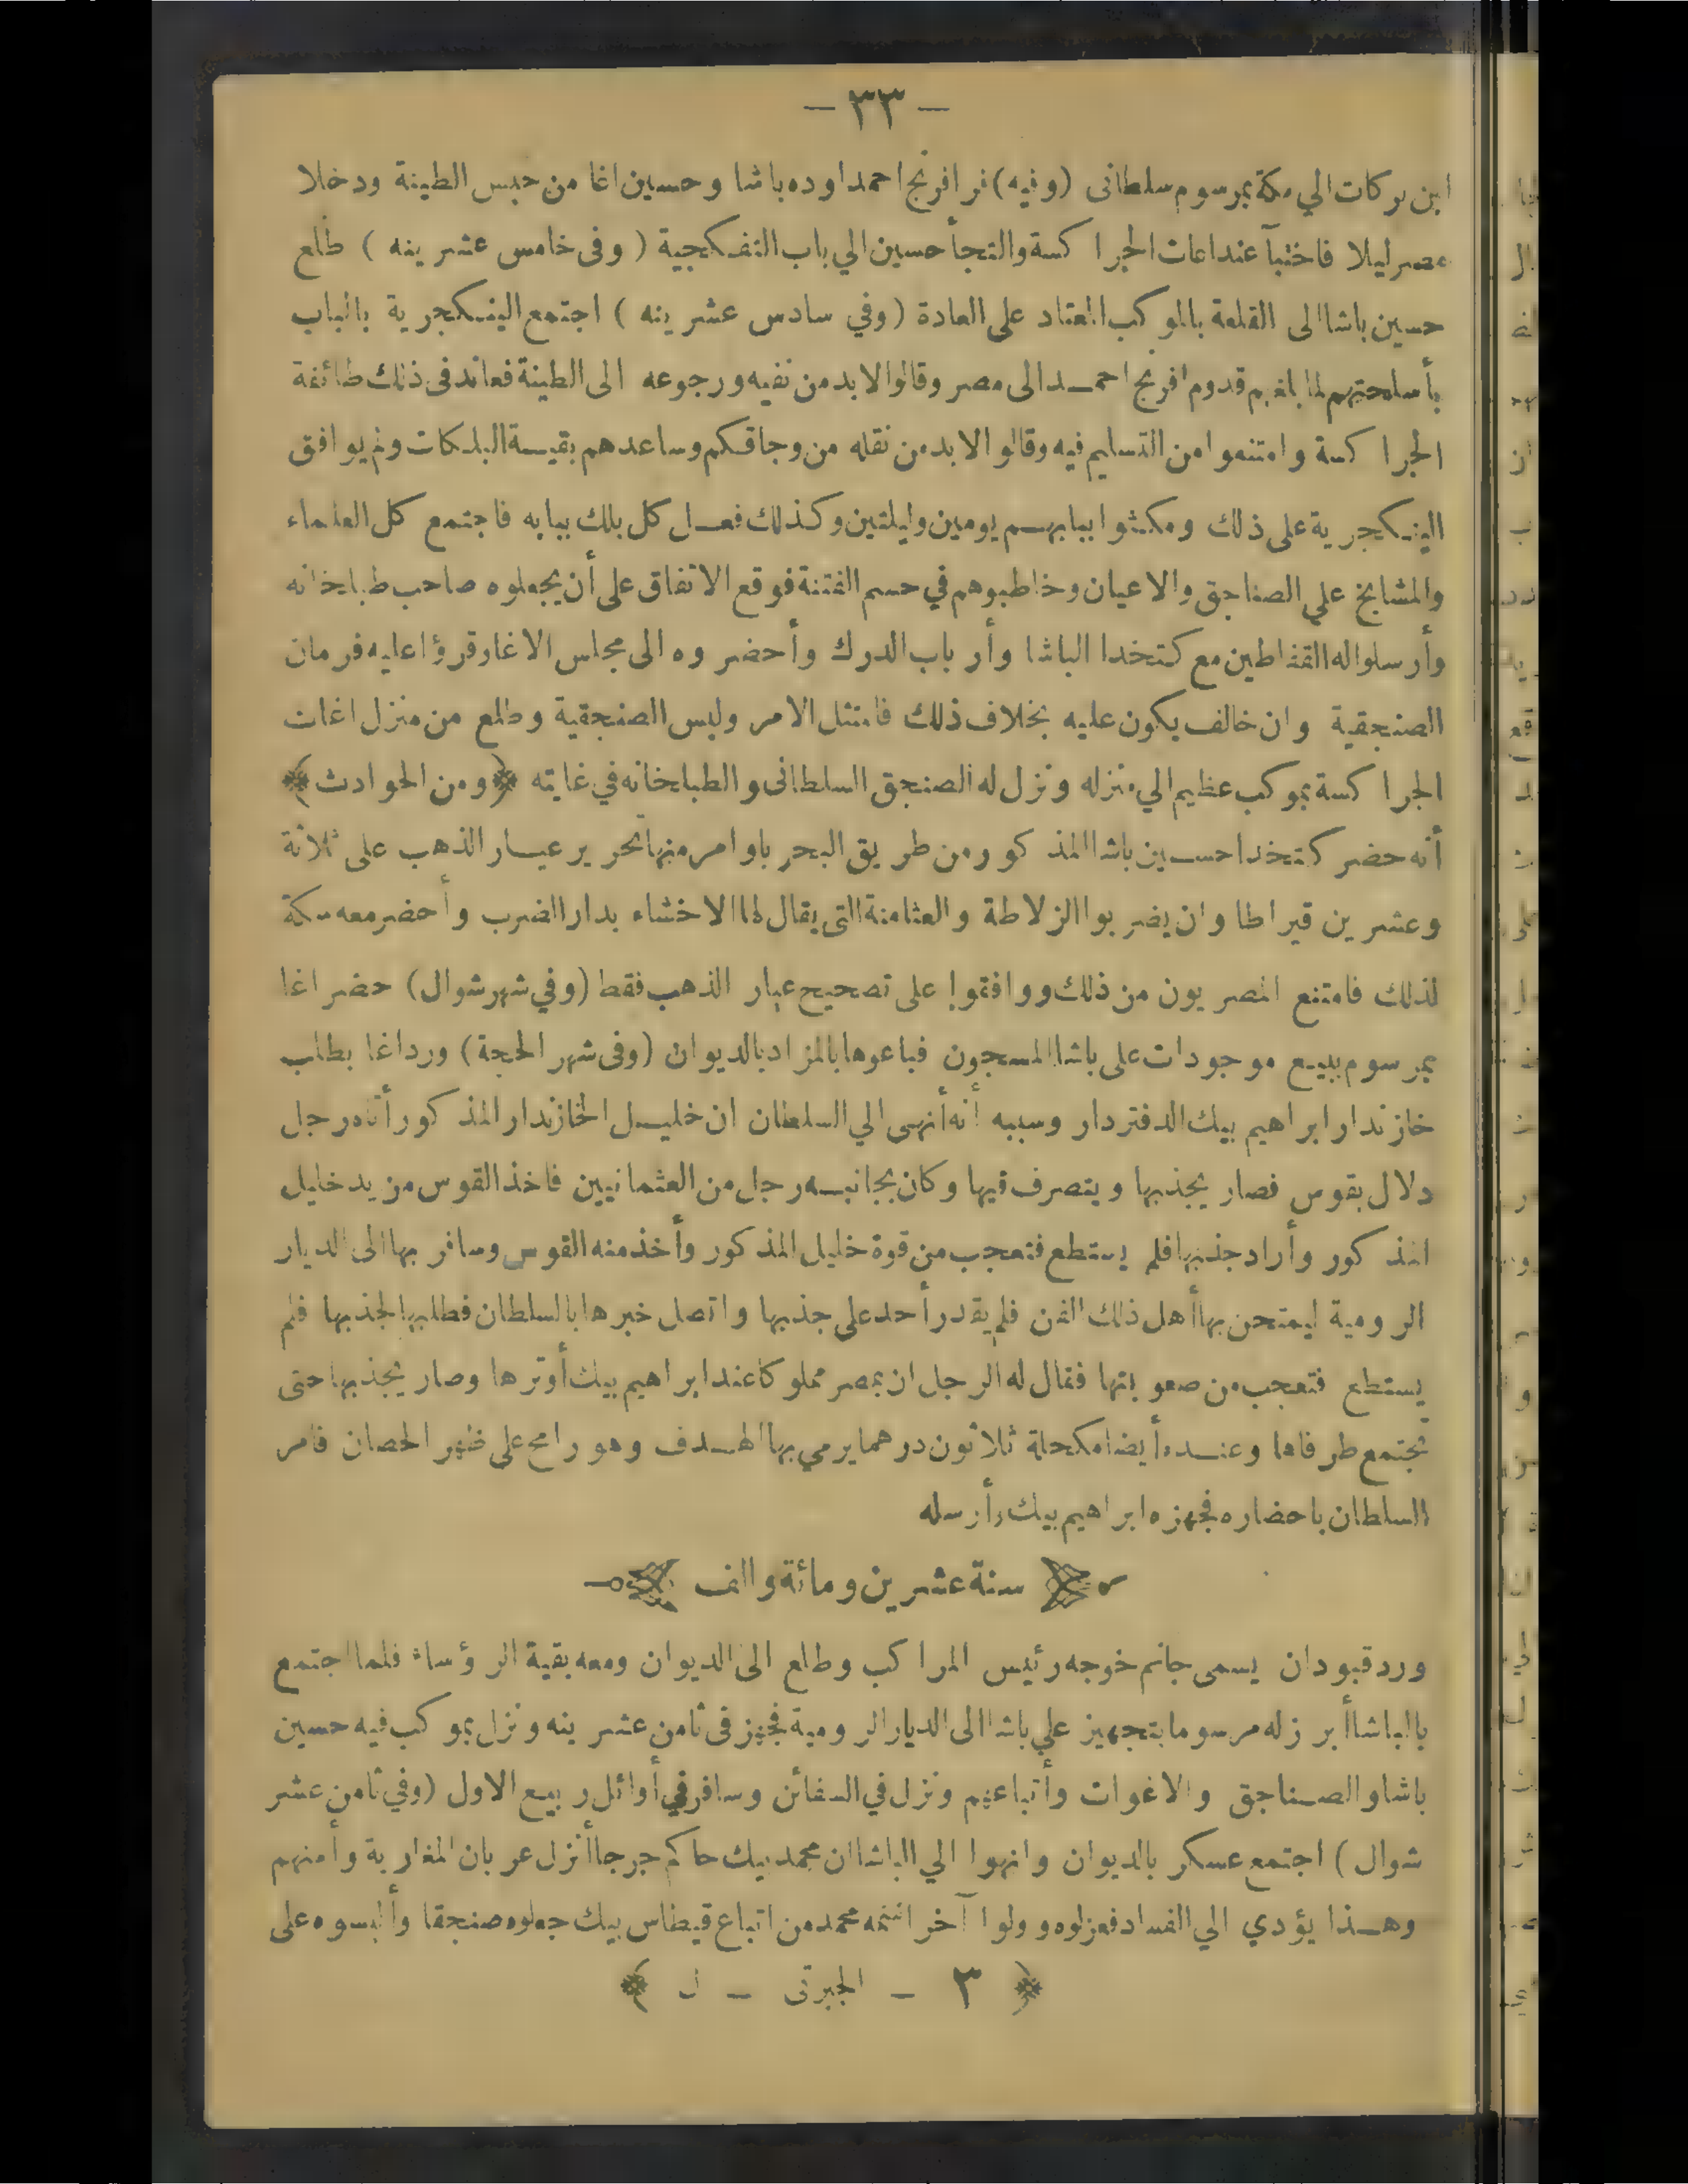 — ٣٣ —
ابن بركات الي مكة بمرسوم سلطانى (وفيه) فر افرنج احمد اوده باشا وحسين اغا من حبس الطينة ودخلا
مصر ليلا فاختبآ عند اغات الجراكسة والتجأ حسين الي باب التفكجية (وفى خامس عشرينه) طلع
حسين باشا الى القلعة بالموكب المعتاد على العادة (وفي سادس عشرينه) اجتمع الينكجرية بالباب
بأسلحتهم لما بلغهم قدوم افرنج احمد الى مصر وقالوا لا بد من نفيه ورجوعه الى الطينة فعاند فى ذلك طائفة
الجراكسة وامتنعوا من التسليم فيه وقالوا لا بد من نقله من وجاقكم وساعدهم بقية البلكات ولم يوافق
الينكجرية على ذلك ومكثوا ببابهم يومين وليلتين وكذلك فعل كل بلك ببابه فاجتمع كل العلماء
والمشايخ على الصناجق والاعيان وخاطبوهم في حسم الفتنة فوقع الاتفاق على أن يجعلوه صاحب طبلخانه
وأرسلوا له القفاطين مع كتخدا الباشا وأرباب الدرك وأحضروه الى مجلس الاغا وقرؤا عليه فرمان
الصنجقية وان خالف يكون عليه بخلاف ذلك فامتثل الامر ولبس الصنجقية وطلع من منزل اغات
الجراكسة بموكب عظيم الي منزله ونزل له الصنجق السلطانى والطبلخانه في غايته ﴿ومن الحوادث﴾
أنه حضر كتخدا حسين باشا المذكور من طريق البحر باوامر منها تحرير عيار الذهب على ثلاثة
وعشرين قيراطا وان يضربوا الزلاطة والعثامنة التى يقال لها الاخشاء بدار الضرب وأحضر معه سكة
لذلك فامتنع المصريون من ذلك ووافقوا على تصحيح عيار الذهب فقط (وفي شهر شوال) حضر اغا
بمرسوم ببيع موجودات على باشا المسجون فباعوها بالمزاد بالديوان (وفى شهر الحجة) ورد اغا بطلب
خازندار ابراهيم بيك الدفتردار وسببه أنه أنهى الي السلطان ان خليل الخازندار المذكور أتاه رجل
دلال بقوس فصار يجذبها ويتصرف فيها وكان بجانبه رجل من العثمانيين فاخذ القوس من يد خليل
المذكور وأراد جذبها فلم يستطع فتعجب من قوة خليل المذكور وأخذ منه القوس وسافر بها الى الديار
الرومية ليمتحن بها أهل ذلك الفن فلم يقدر أحد على جذبها واتصل خبرها بالسلطان فطلبها لجذبها فلم
يستطع فتعجب من صعوبتها فقال له الرجل ان بمصر مملوكا عند ابراهيم بيك أوترها وصار يجذبها حتى
تجتمع طرفاها وعنده أيضا مكحلة ثلاثون درهما يرمي بها الهدف وهو رامح على ظهر الحصان فامر
السلطان باحضاره فجهزه ابراهيم بيك وأرسله
سنة عشرين ومائة والف
ورد قبودان يسمى جانم خوجه رئيس المراكب وطلع الى الديوان ومعه بقية الرؤساء فلما اجتمع
بالباشا أبرز له مرسوما بتجهيز علي باشا الى الديار الرومية فجهز فى ثامن عشرينه ونزل بموكب فيه حسين
باشا والصناجق والاغوات وأتباعهم ونزل في السفائن وسافر في أوائل ربيع الاول (وفي ثامن عشر
شوال) اجتمع عسكر بالديوان وانهوا الي الباشا ان محمد بيك حاكم جرجا أنزل عربان المغاربة وأمنهم
وهذا يؤدي الي الفساد فعزلوه وولوا آخر اسمه محمد من اتباع قيطاس بيك جعلوه صنجقا وألبسوه على
﴿ ٣ — الجبرتى — ل ﴾